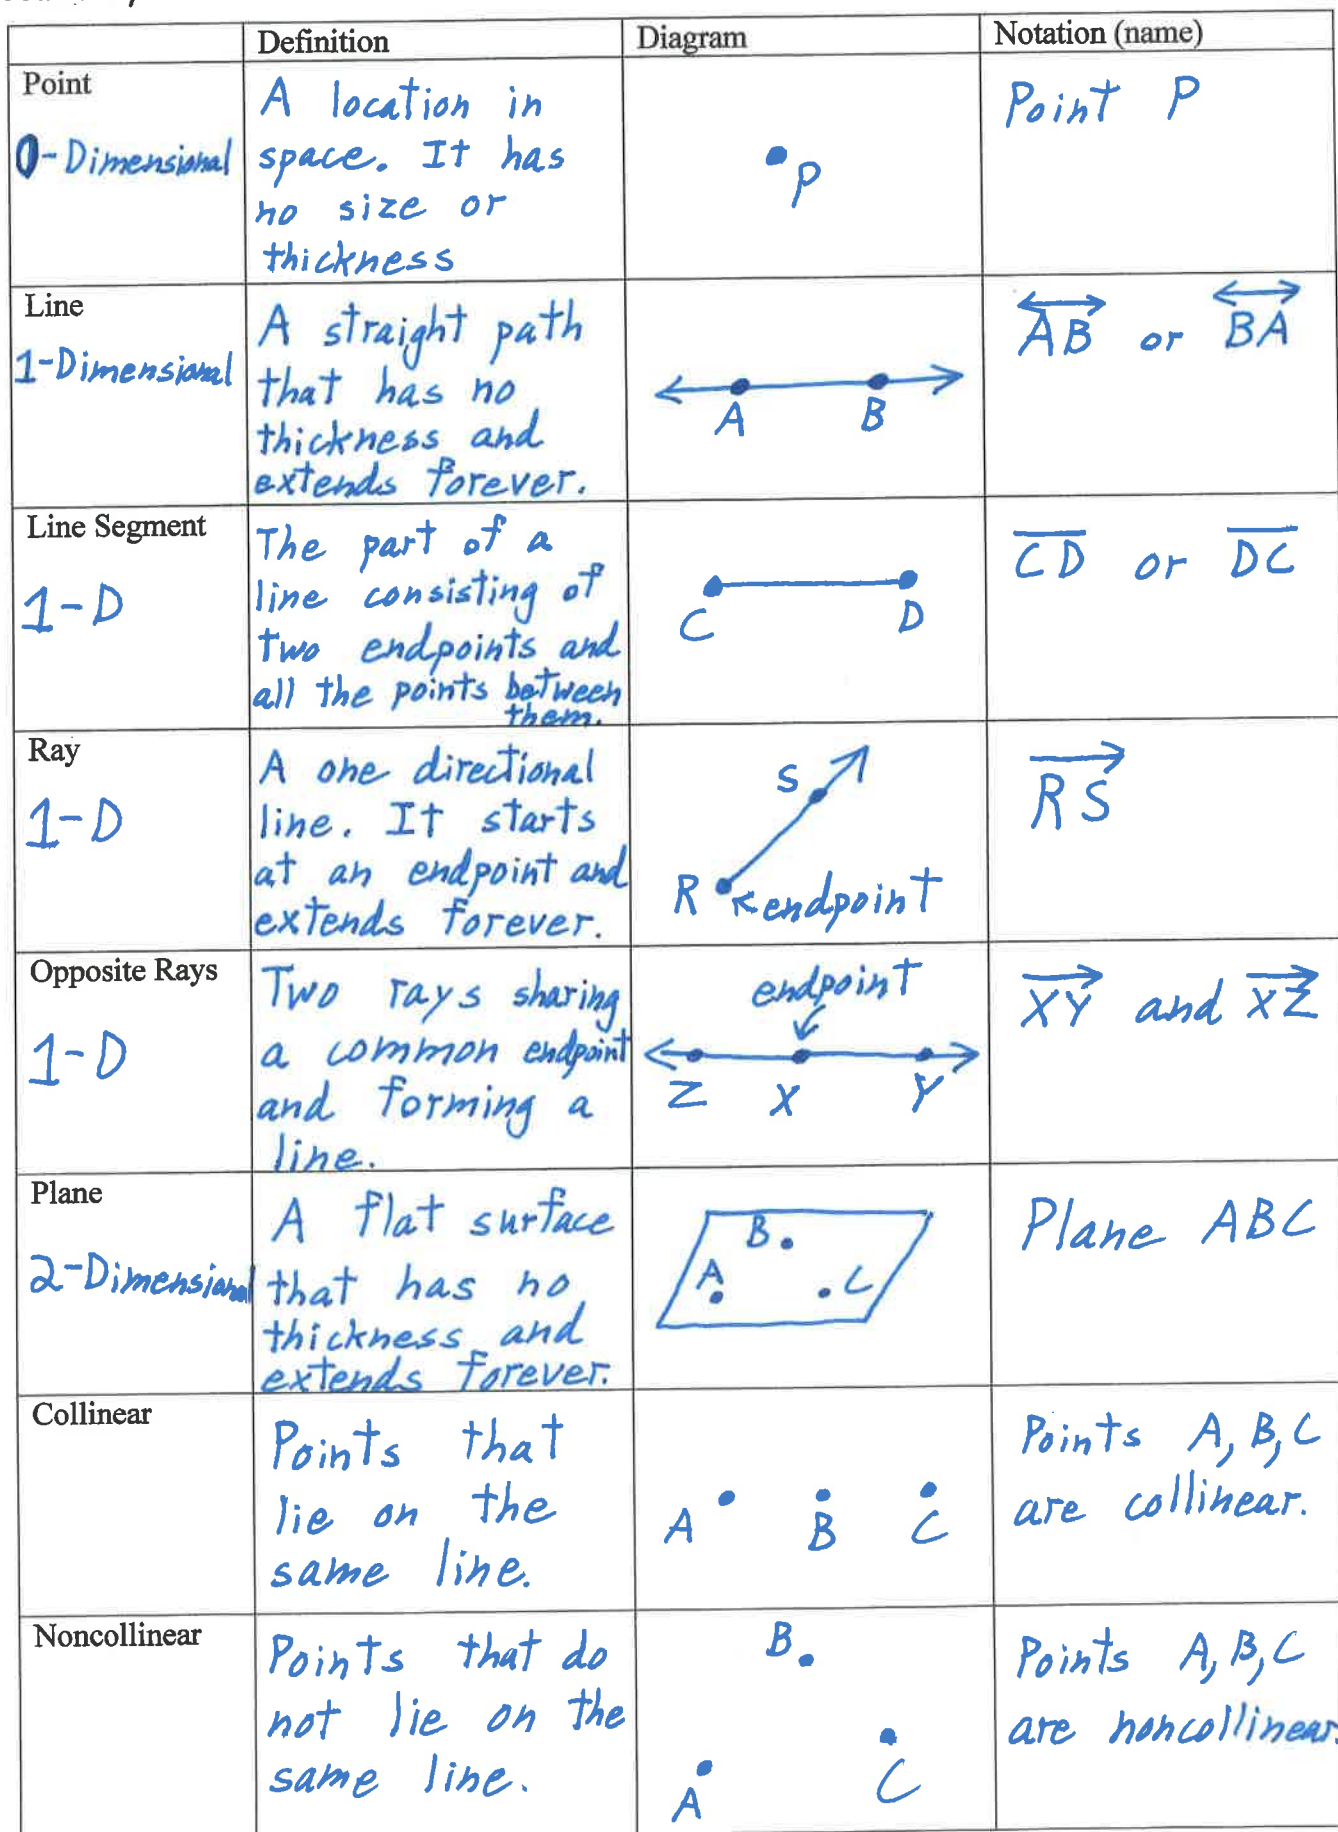 Definition
Diagram
Notation (name)
Point
0-Dimensional
A location in
space. It has
no size or
thickness
P
Point P
Line
1-Dimensional
A straight path
that has no
thickness and
extends forever.
A B
AB or BA
Line Segment
1-D
The part of a
line consisting of
two endpoints and
all the points between
them.
C D
CD or DC
Ray
1-D
A one directional
line. It starts
at an endpoint and
extends forever.
S
R endpoint
RS
Opposite Rays
1-D
Two rays sharing
a common endpoint
and forming a
line.
endpoint
Z X Y
XY and XZ
Plane
2-Dimensional
A flat surface
that has no
thickness and
extends forever.
B
A C
Plane ABC
Collinear
Points that
lie on the
same line.
A B C
Points A, B, C
are collinear.
Noncollinear
Points that do
not lie on the
same line.
B
A C
Points A, B, C
are noncollinear.